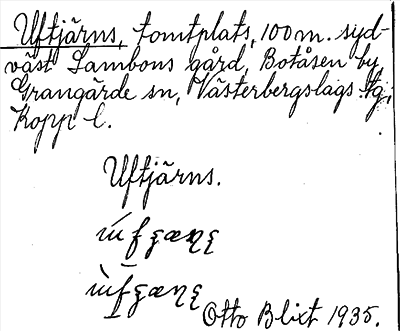 Uftjärns, tomtplats, 100 m. syd-
väst Lambons gård, Botåsen by,
Grangärde sn, Västerbergslags tg,
Kopp-l.
Uftjärns.
Otto Blixt 1935.